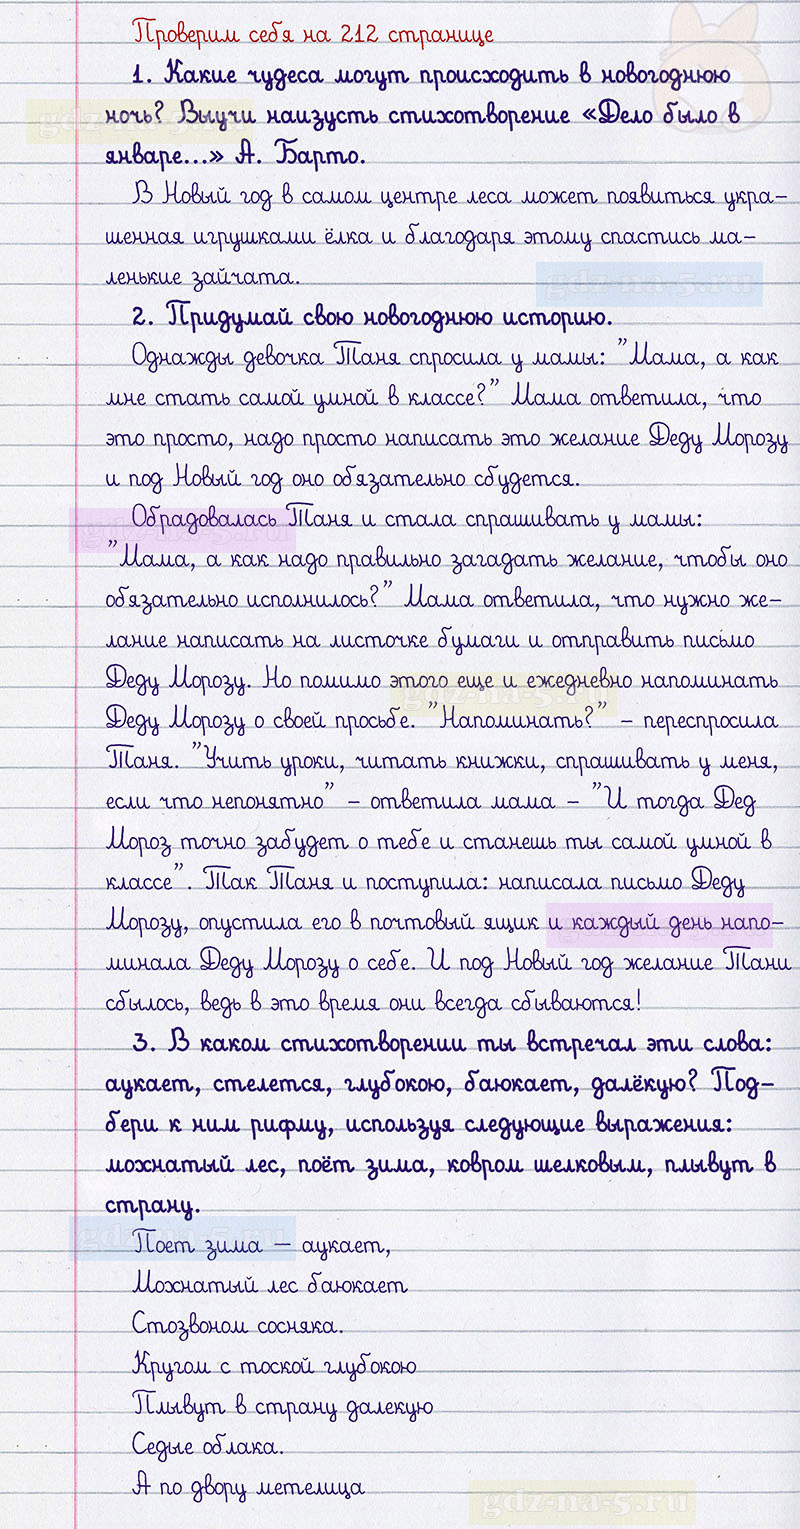 Проверим себя на 212 странице
1. Какие чудеса могут происходить в новогоднюю
ночь? Выучи наизусть стихотворение «Дело было в
январе...» А. Барто.
В Новый год в самом центре леса может появиться укра-
шенная игрушками ёлка и благодаря этому спастись ма-
ленькие зайчата.
2. Придумай свою новогоднюю историю.
Однажды девочка Таня спросила у мамы: "Мама, а как
мне стать самой умной в классе?" Мама ответила, что
это просто, надо просто написать это желание Деду Морозу
и под Новый год оно обязательно сбудется.
Обрадовалась Таня и стала спрашивать у мамы:
"Мама, а как надо правильно загадать желание, чтобы оно
обязательно исполнилось?" Мама ответила, что нужно же-
лание написать на листочке бумаги и отправить письмо
Деду Морозу. Но помимо этого еще и ежедневно напоминать
Деду Морозу о своей просьбе. "Напоминать?" – переспросила
Таня. "Учить уроки, читать книжки, спрашивать у меня,
если что непонятно" – ответила мама – "И тогда Дед
Мороз точно забудет о тебе и станешь ты самой умной в
классе". Так Таня и поступила: написала письмо Деду
Морозу, опустила его в почтовый ящик и каждый день напо-
минала Деду Морозу о себе. И под Новый год желание Тани
сбылось, ведь в это время они всегда сбываются!
3. В каком стихотворении ты встречал эти слова:
аукает, стелется, глубокою, баюкает, далёкую? Под-
бери к ним рифму, используя следующие выражения:
мохнатый лес, поёт зима, ковром шелковым, плывут в
страну.
Поет зима – аукает,
Мохнатый лес баюкает
Стозвоном сосняка.
Кругом с тоской глубокою
Плывут в страну далекую
Седые облака.
А по двору метелица
gdz-na-5.ru
gdz-na-5.ru
gdz-na-5.ru
gdz-na-5.ru
gdz-na-5.ru
gdz-na-5.ru
gdz-na-5.ru